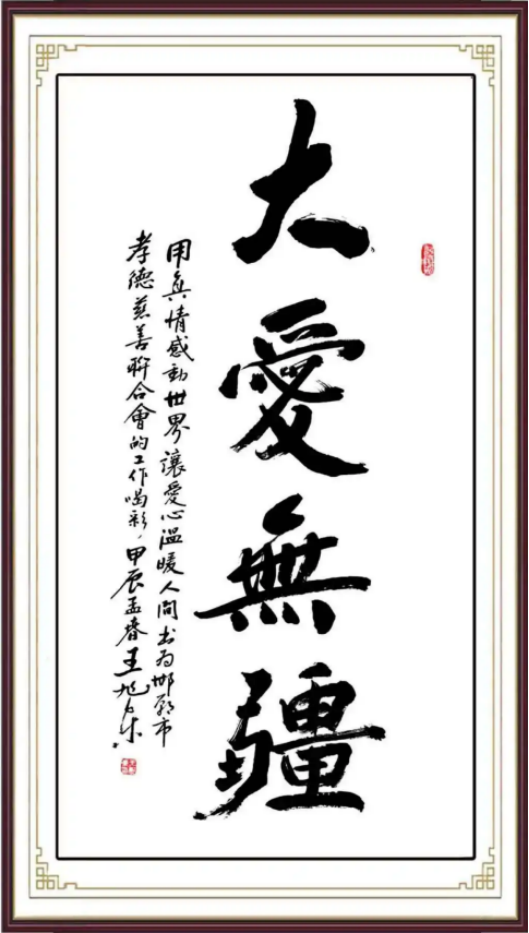 大愛無疆
用真情感動世界讓愛心溫暖人間書為邯鄲市
孝德慈善聯合會的工作喝彩，甲辰孟春王旭東